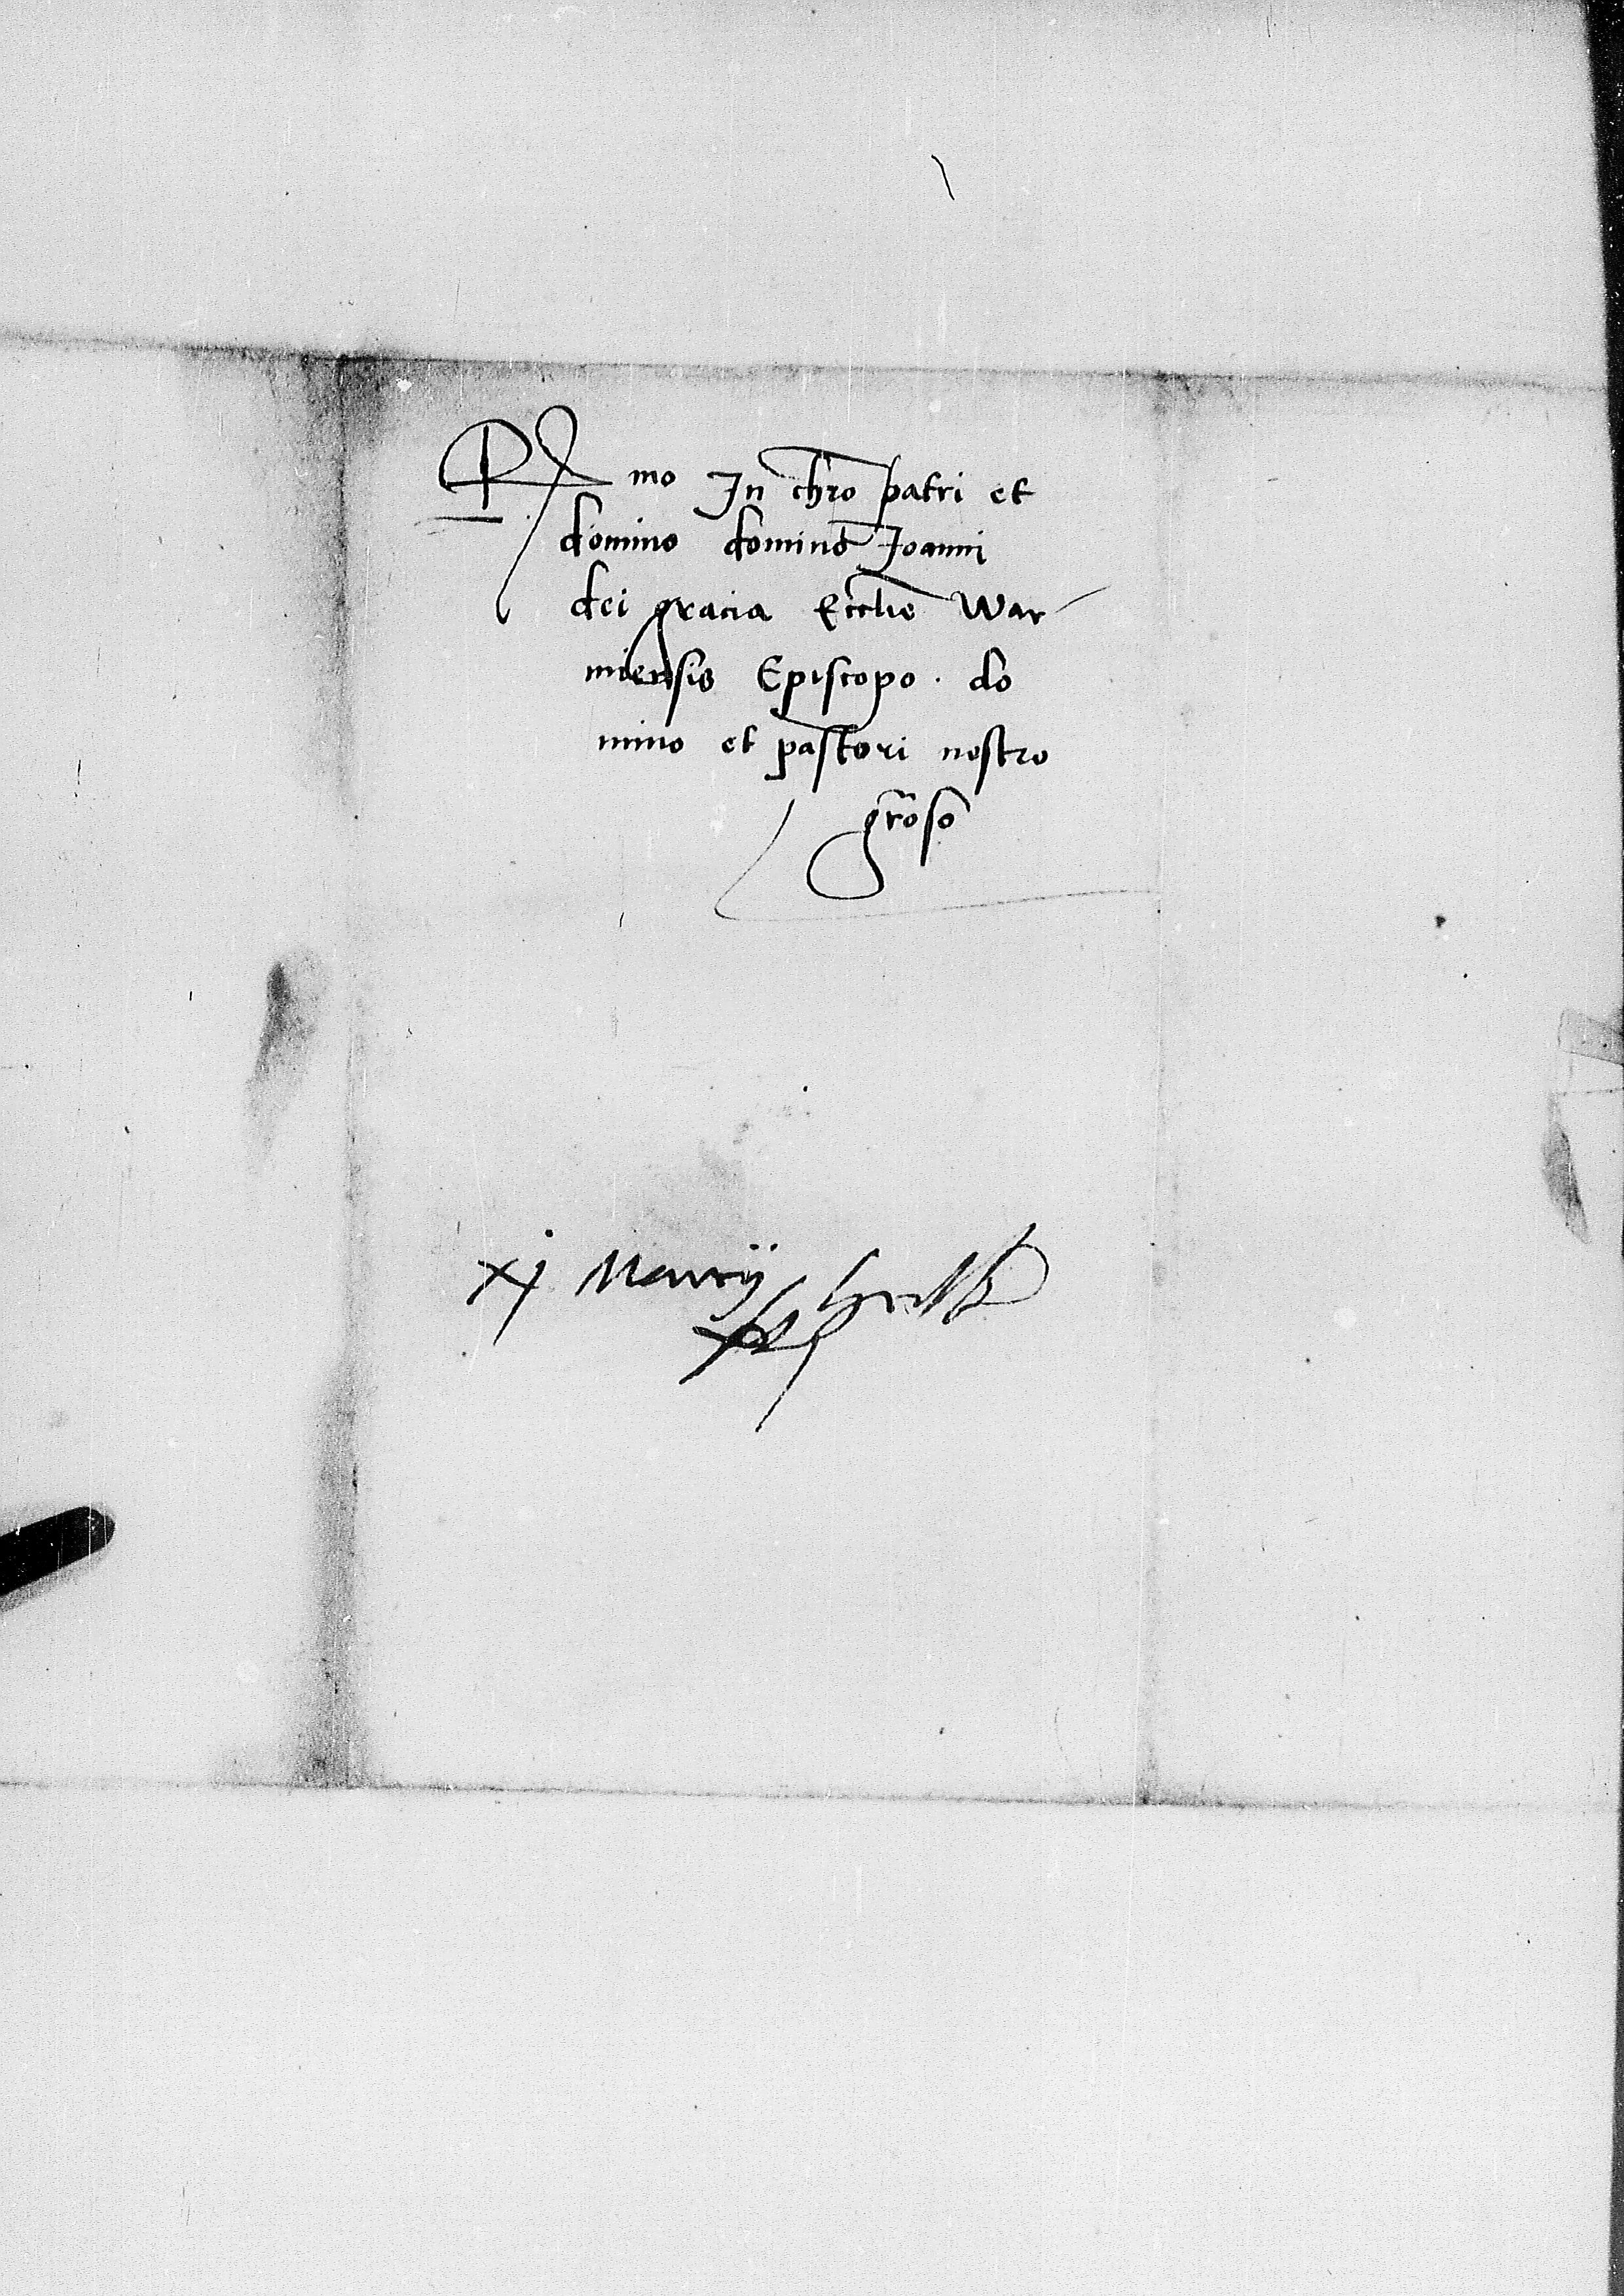 R mo In chro patri et
domino domino Joanni
dei gracia Ecclie War
miensis Episcopo . do
mino et pastori nostro
groso
xj Marcij